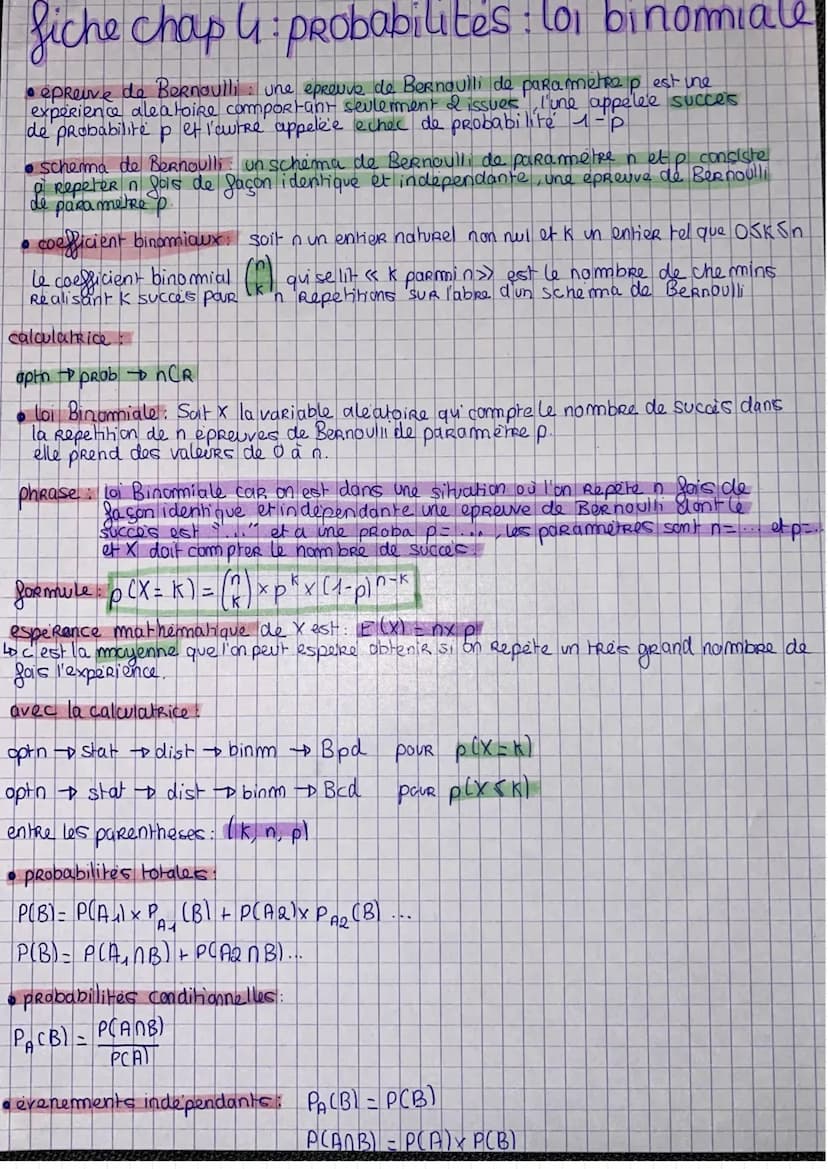 fiche chap 4 : probabilités : loi binomiale
• épreuve de Bernoulli : une épreuve de Bernoulli de paramètre p est une
expérience aléatoire comportant seulement 2 issues, l'une appelée succès
de probabilité p et l'autre appelée echec de probabilité 1-p
• schéma de Bernoulli : un schéma de Bernoulli de paramètre n et p consiste
à repeter n fois de façon identique et indépendante, une épreuve de Bernoulli
de paramètre p.
• coefficient binomiaux : soit n un entier naturel non nul et K un entier tel que 0≤K≤n
le coefficient binomial (n K) qui se lit « K parmi n » est le nombre de chemins
réalisant K succès pour n repetitions sur l'abre d'un schema de Bernoulli
calculatrice :
optn → prob → nCR
• loi Binomiale : Soit X la variable aléatoire qui compte le nombre de succès dans
la repetition de n épreuves de Bernoulli de paramètre p.
elle prend des valeurs de 0 à n.
phrase : loi Binomiale car on est dans une situation où l'on repète n fois de
façon identique et indépendante une epreuve de Bernoulli dont le
succès est "..." et a une proba p=..., les paramètres sont n=... et p=...
et X doit compter le nombre de succès.
formule : p(X=K) = (n K) × p^K × (1-p)^n-K
espérance mathématique de X est : E(X) = n×p
↳ c'est la moyenne que l'on peut espéré obtenir si on repète un très grand nombre de
fois l'expérience.
avec la calculatrice :
optn → stat → dist → binm → Bpd pour p(X=K)
optn → stat → dist → binm → Bcd pour p(X≤K)
entre les parenthèses : (K, n, p)
• probabilités totales :
P(B) = P(A1) × P_A1(B) + P(A2) × P_A2(B) ...
P(B) = P(A1∩B) + P(A2∩B)...
• probabilités conditionnelles :
P_A(B) = P(A∩B) / P(A)
• évenements indépendants : P_A(B) = P(B)
P(A∩B) = P(A) × P(B)